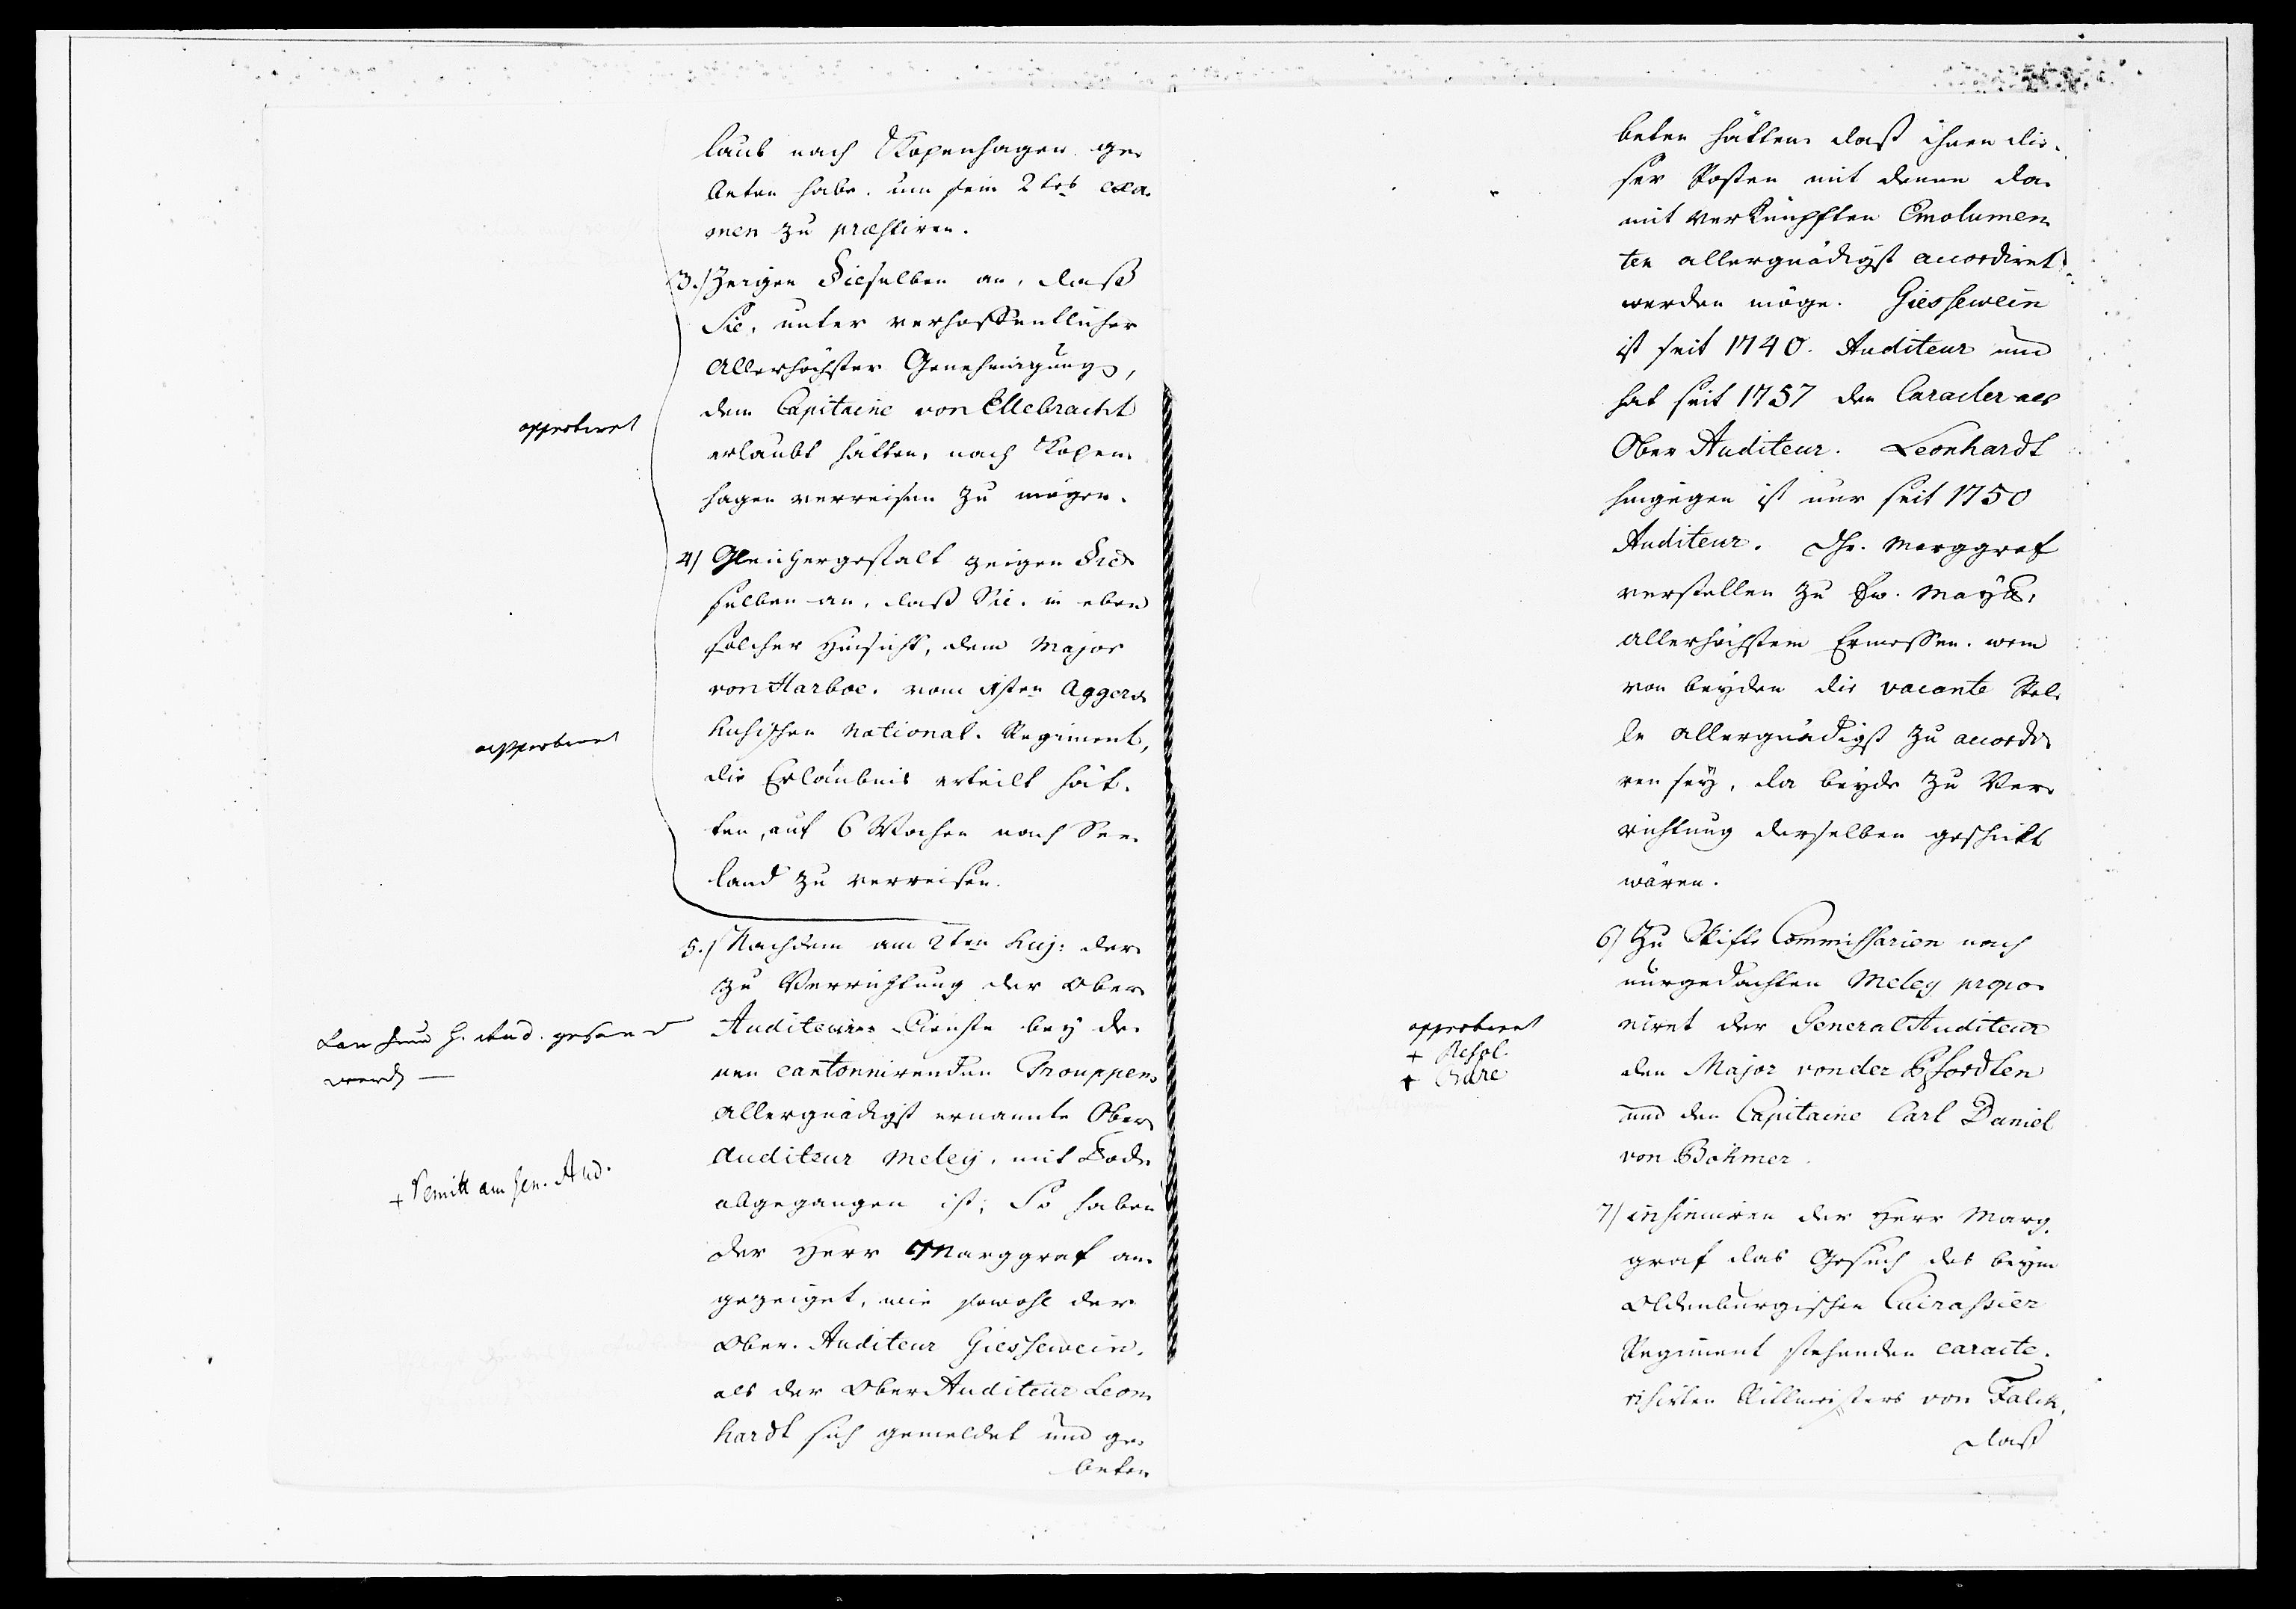 laub nach Kopenhagen ge-
beten habe, um sein 2tes exa-
men zu præstiren.
3.) Zeigen Dieselben an, daß
Sie, unter verhoffentlicher
Allerhöchster Genehmigung,
dem Capitaine von Ellebracht
erlaubt hätten, nach Kopen-
hagen verreisen zu mögen.
approbiret
4) Gleichergestalt zeigen Die-
selben an, daß Sie, in eben
solcher Hinsicht, dem Major
von Harboe, vom 1sten Agger-
husischen National-Regiment,
die Erlaubnis erteilt hät-
ten, auf 6 Wochen nach See-
land zu verreisen.
approbiret
5.) Nachdem am 2ten huj: der
zu Verrichtung der Ober
Auditeurs-Dienste bey de-
nen cantonnirenden Trouppen
Allergnädigst ernannte Ober
Auditeur Meley, mit Tode
abgegangen ist; So haben
der Herr Marggraf an-
gezeiget, wie sowohl der
Ober-Auditeur Giessewein,
als der Ober Auditeur Leon-
hardt sich gemeldet und ge-
beten
G. Aud. gehand
werd
+ Remitt am Gen. Aud.
beten hätten, daß ihnen die-
ser Posten mit denen da-
mit verknüpften Emolumen-
ten allergnädigst accordiret
werden möge. Giessewein
ist seit 1740. Auditeur und
hat seit 1757 den Caracter als
Ober Auditeur. Leonhardt
hingegen ist nur seit 1750
Auditeur. Der Marggraf
verstellen zu Ew. Mayt.
Allerhöchstem Ermessen, wem
von beyden die vacante Stel-
le Allergnädigst zu accordi-
ren sey, da beyde zu Ver-
richtung derselben geschikt
wären.
6) Zu Stifts Commissarien nach
nurgedachten Meley propo-
niret der General Auditeur
den Major von der Pfordten
und den Capitaine Carl Daniel
von Böhmer.
approbiret
+ Resol.
+ Ordre
7) insinuiren der Herr Marg-
graf das Gesuch des beym
Oldenburgischen Cuirassier
Regiment stehenden caracte-
risirten Rittmeisters von Falck,
daß